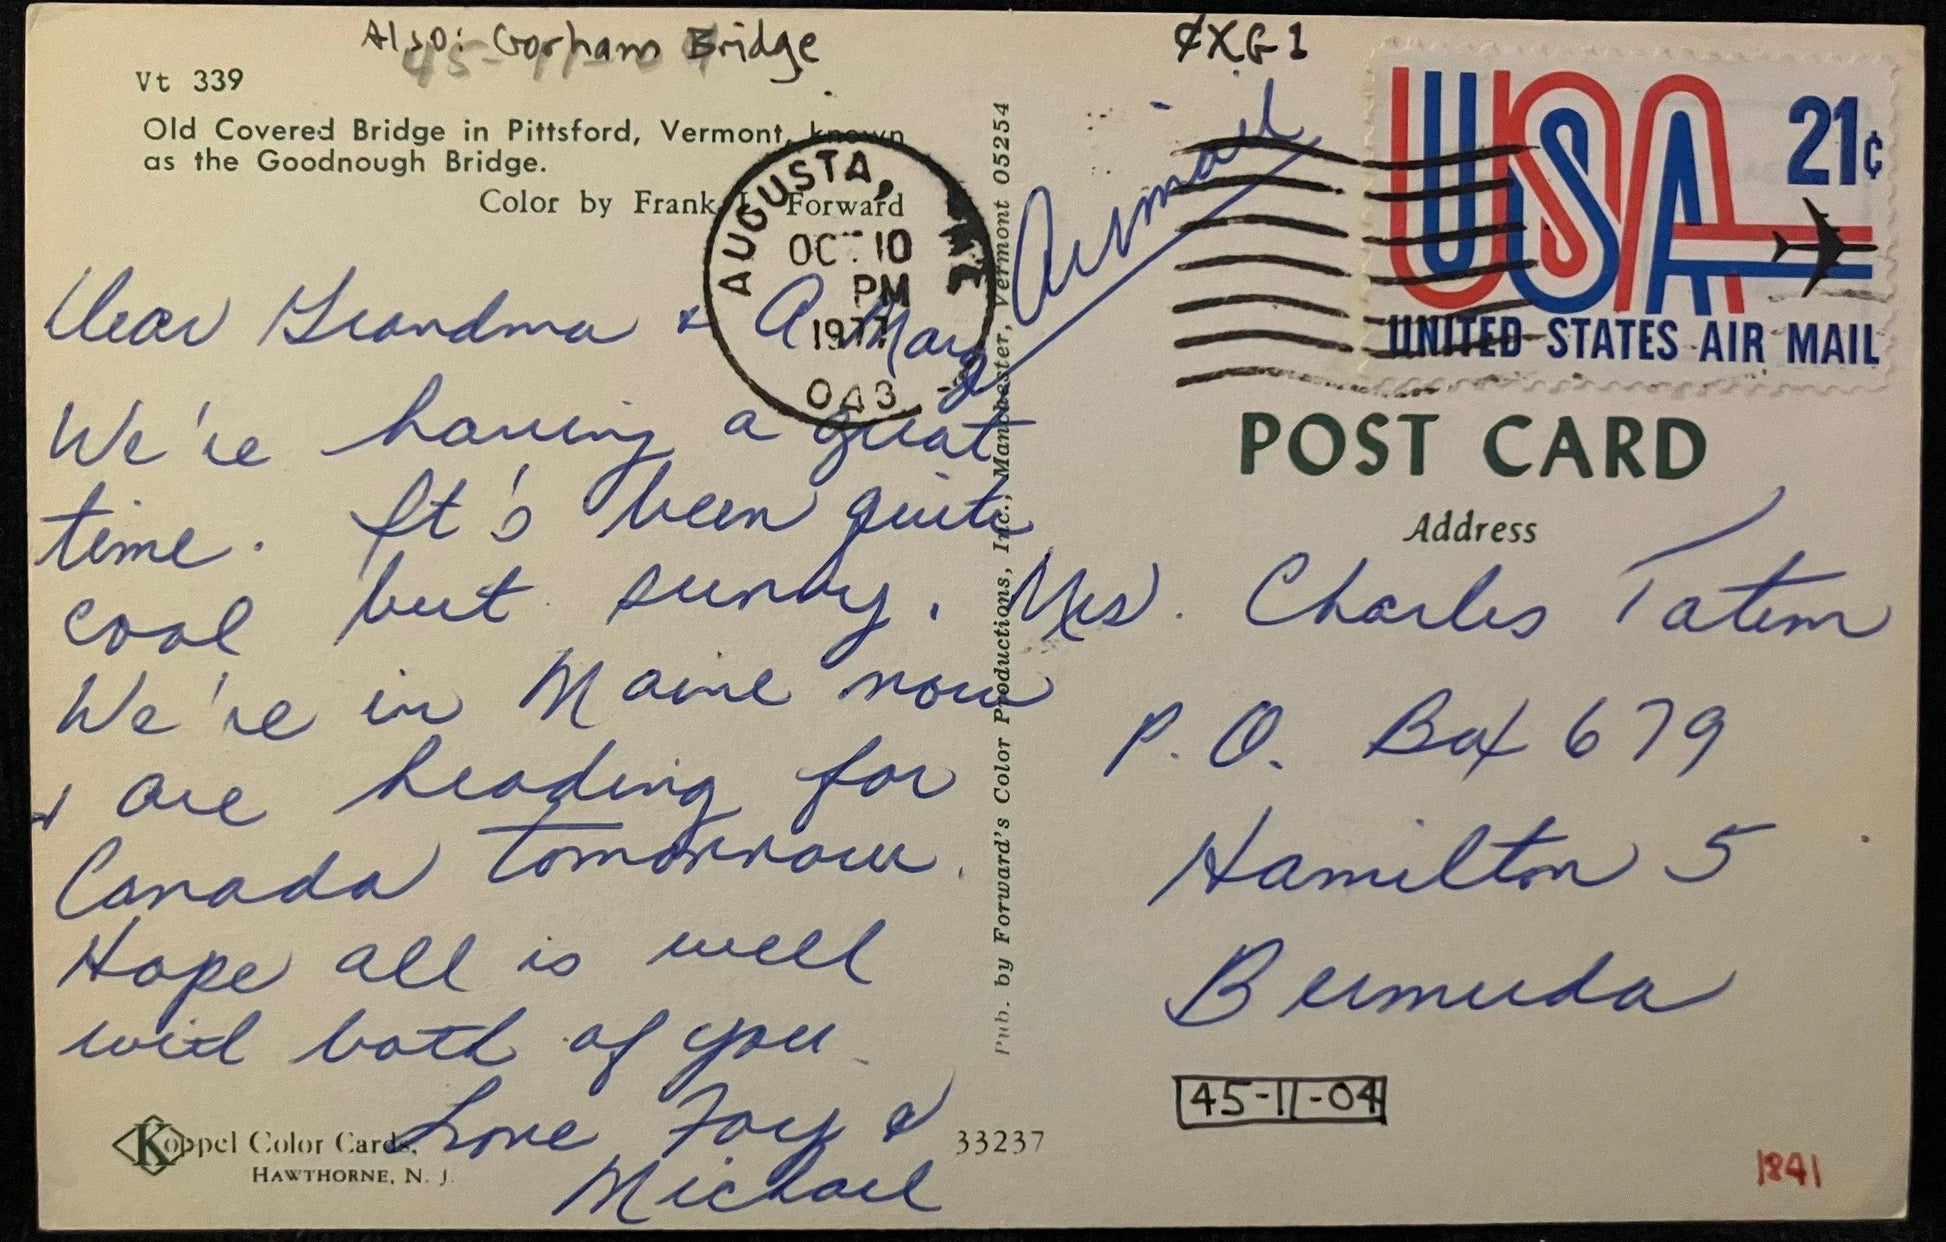 Also: Gorham Bridge
¢XG1
Vt 339
Old Covered Bridge in Pittsford, Vermont, known
as the Goodnough Bridge.
Color by Frank L. Forward
AUGUSTA, ME
OCT 10
PM
1977
043
Airmail
USA
21¢
UNITED STATES AIR MAIL
POST CARD
Address
Dear Grandma & A. Mary
We're having a great
time. It's been quite
cool but sunny.
We're in Maine now
& are heading for
Canada tomorrow.
Hope all is well
with both of you
Love Fay &
Michael
Pub. by Forward's Color Productions, Inc., Manchester, Vermont 05254
Mrs. Charles Tatem
P.O. Box 679
Hamilton 5
Bermuda
45-11-04
Koppel Color Cards,
HAWTHORNE, N. J.
33237
1841